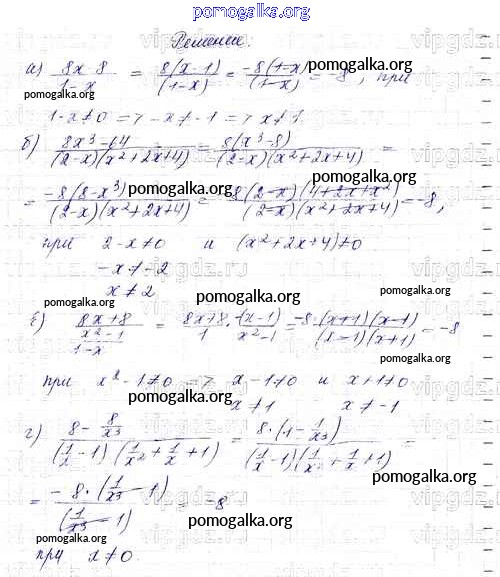 pomogalka.org
Решение:
а) 8x-8/1-x = 8(x-1)/(1-x) = -8(1-x)/(1-x) = -8, при
pomogalka.org pomogalka.org
1-x≠0 => -x≠-1 => x≠1.
б) 8x³-64/(2-x)(x²+2x+4) = 8(x³-8)/(2-x)(x²+2x+4) =
pomogalka.org pomogalka.org
= -8(8-x³)/(2-x)(x²+2x+4) = -8(2-x)(4+2x+x²)/(2-x)(x²+2x+4) = -8,
pomogalka.org
при 2-x≠0 и (x²+2x+4)≠0
-x≠-2
x≠2
pomogalka.org
pomogalka.org
8x+8/(x²-1/1-x) = 8x+8/1 · -(x-1)/x²-1 = -8·(x+1)(x-1)/(x-1)(x+1) = -8
pomogalka.org
при x²-1≠0 => x-1≠0 и x+1≠0
pomogalka.org
x≠1 x≠-1
г) 8-8/x³/(1/x-1)(1/x²+1/x+1) = 8·(1-1/x³)/(1/x-1)(1/x²+1/x+1) =
pomogalka.org
= -8·(1/x³-1)/(1/x³-1) = -8
pomogalka.org
pomogalka.org
при x≠0.
pomogalka.org